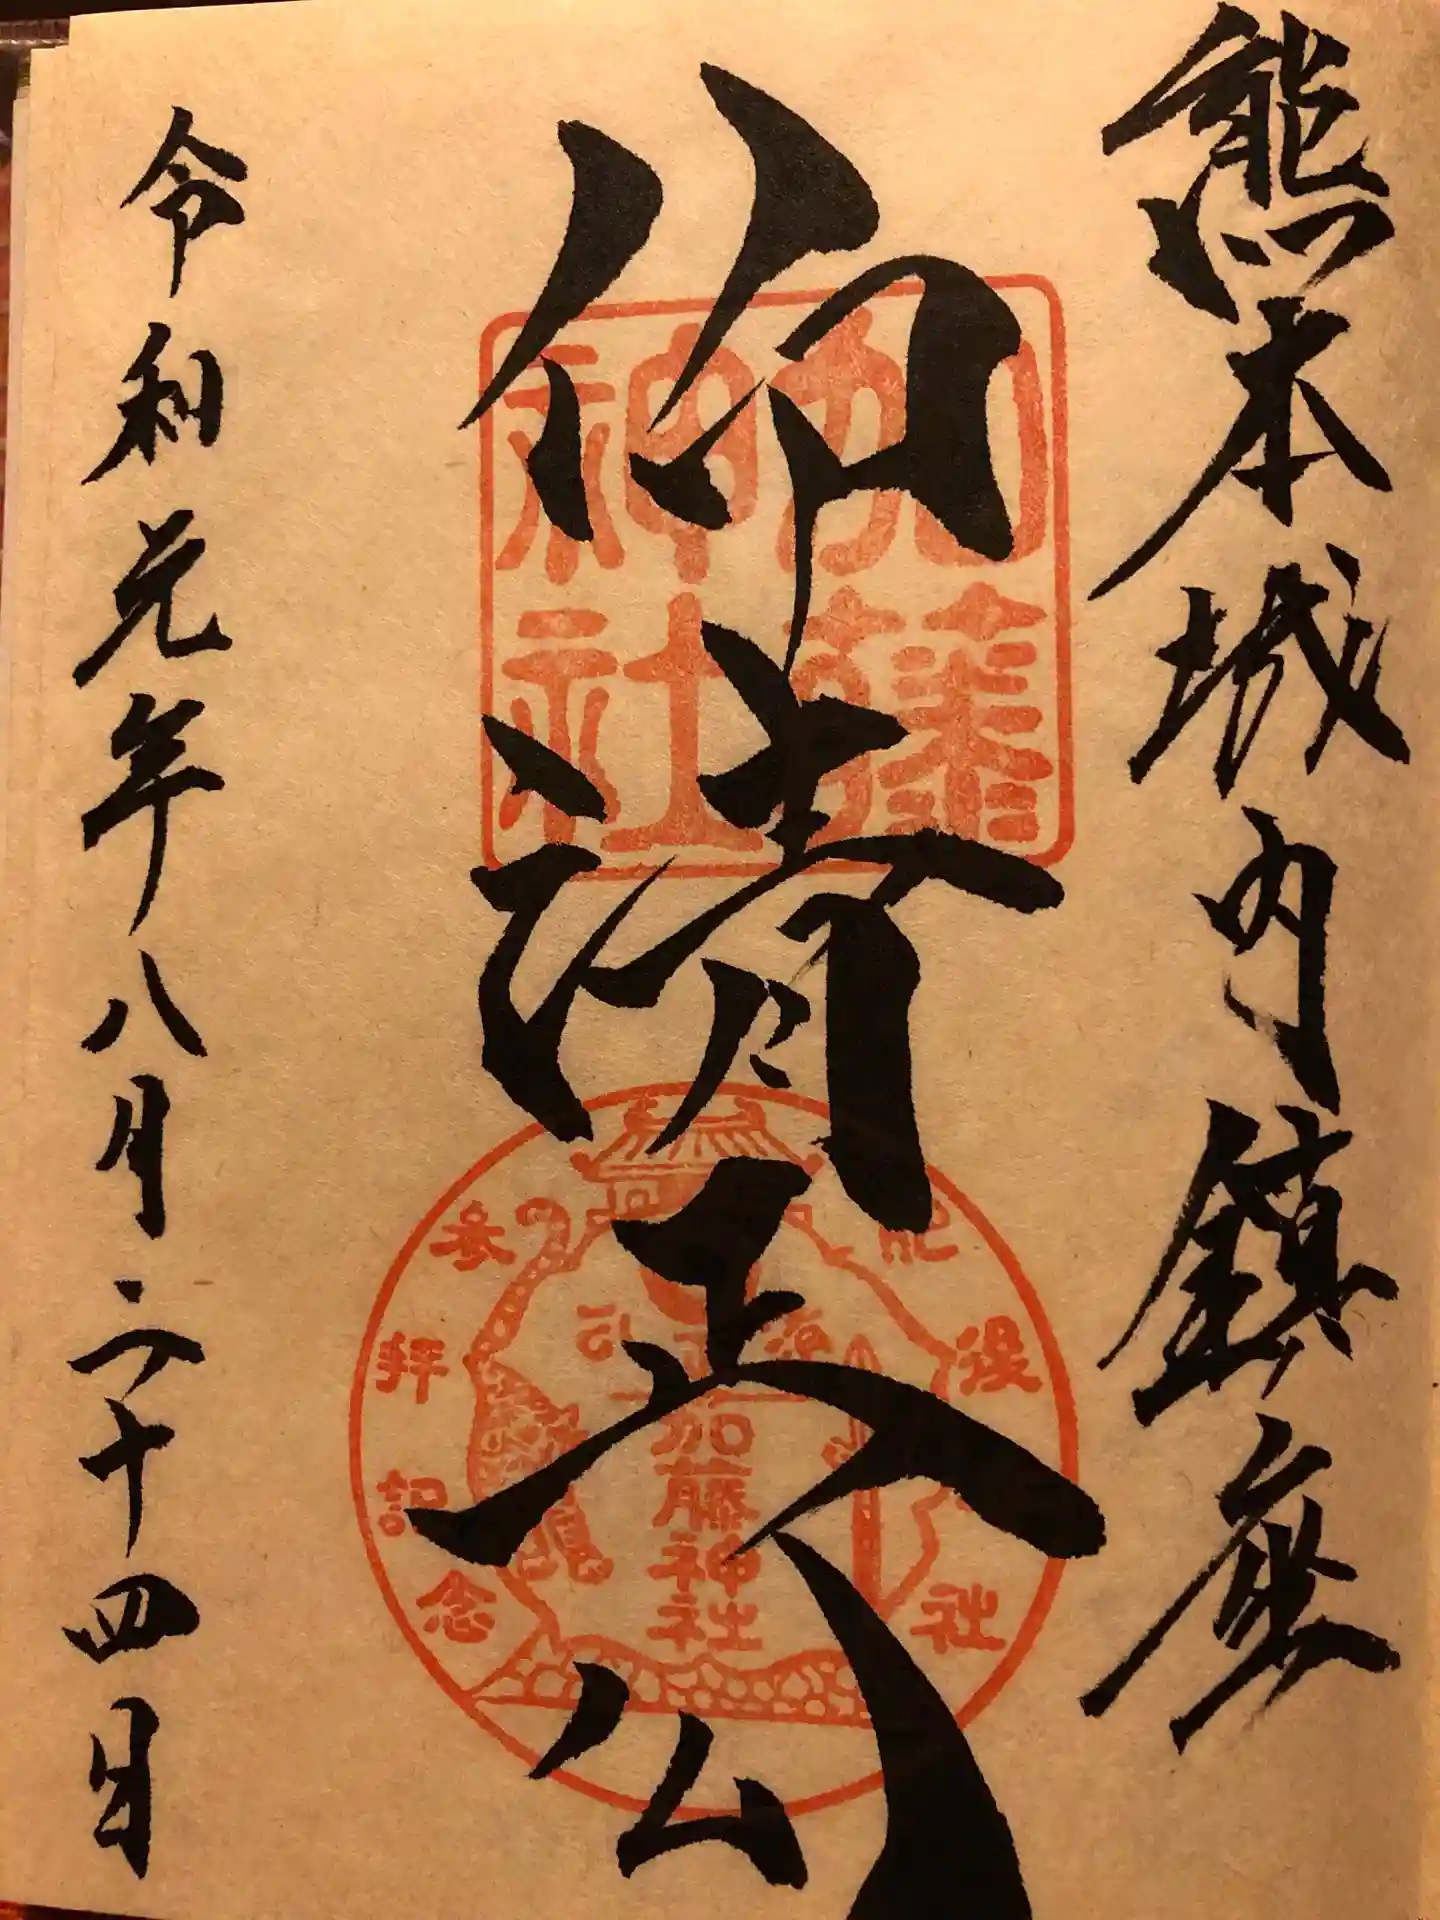 熊本城内鎮座
仰清正公
加藤
神社
肥後
社
清正公
加藤神社
参拝記念
令和元年八月二十四日